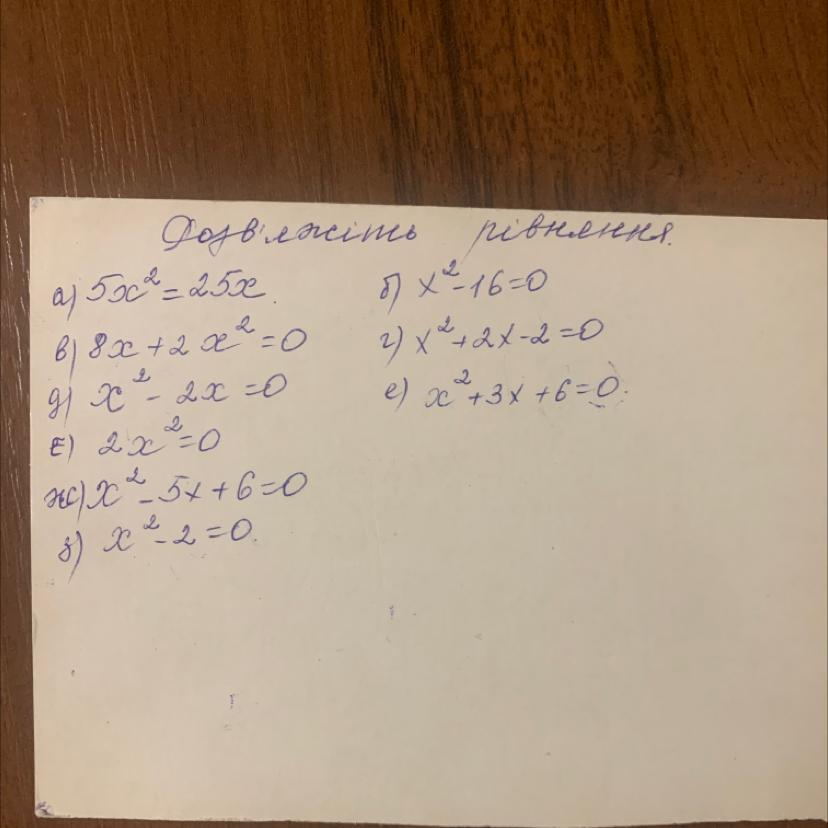 Розв'яжіть рівняння.
а) 5x² = 25x. б) x² - 16 = 0
в) 8x + 2x² = 0 г) x² + 2x - 2 = 0
д) x² - 2x = 0 е) x² + 3x + 6 = 0.
є) 2x² = 0
ж) x² - 5x + 6 = 0
з) x² - 2 = 0.